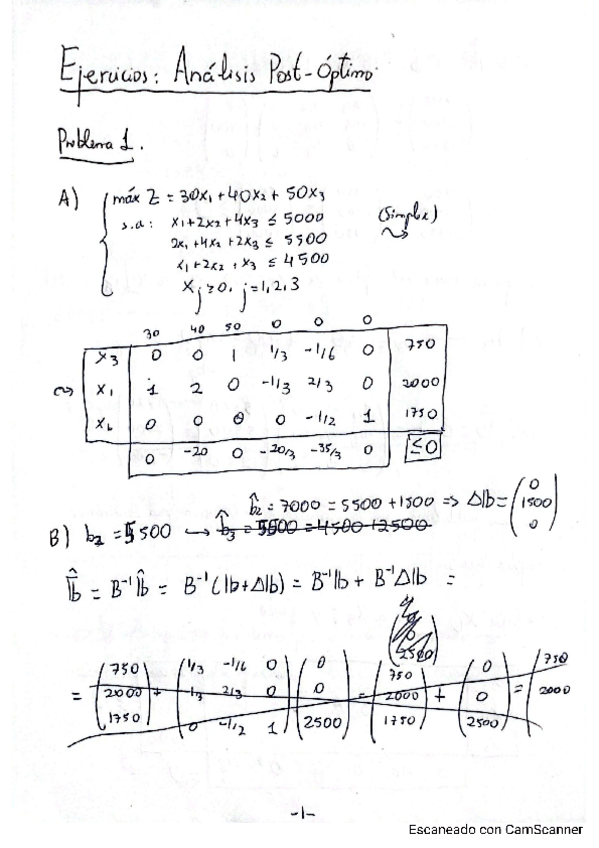 Ejercicios: Análisis Post-Óptimo.
Problema 1.
A) máx Z = 30x₁ + 40x₂ + 50x₃
s.a: x₁ + 2x₂ + 4x₃ ≤ 5000 (Simplex)
2x₁ + 4x₂ + 2x₃ ≤ 5500
x₁ + 2x₂ + x₃ ≤ 4500
xⱼ ≥ 0, j = 1,2,3
30 40 50 0 0 0
x₃ 0 0 1 1/3 -1/6 0 750
x₁ 1 2 0 -1/3 2/3 0 2000
x₆ 0 0 0 0 -1/2 1 1750
0 -20 0 -20/3 -35/3 0 ≤0
b̂₂ = 7000 = 5500 + 1500 => Δb = (0 1500 0)
B) b₂ = 5500 → b̂₃ =
b̄̂ = B⁻¹b̂ = B⁻¹(b+Δb) = B⁻¹b + B⁻¹Δb =
= (750 2000 1750) + (1/3 -1/6 0 -1/3 2/3 0 0 -1/2 1) (0 0 2500) = (750 2000 1750) + (0 0 2500) = (750 2000
-1-
Escaneado con CamScanner